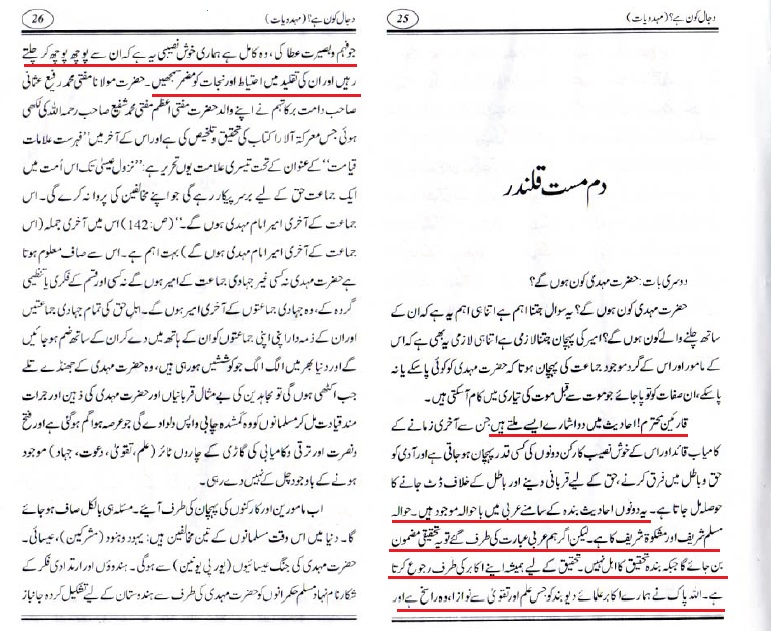 دجال کون ہے؟ (مہدویات)
25
دم مست قلندر
دوسری بات: حضرت مہدی کون ہوں گے؟
حضرت مہدی کون ہوں گے؟ یہ سوال جتنا اہم ہے اتنا ہی اہم یہ ہے کہ ان کے
ساتھ چلنے والے کون ہوں گے؟ امیر کی پہچان جتنا لازمی ہے اتنا ہی لازمی یہ بھی ہے کہ اس
کے مامور اور اس کے گرد موجود جماعت کی پہچان ہو تا کہ حضرت مہدی کو کوئی پا سکے یا نہ
پا سکے، ان صفات کو تو پا جائے جو موت سے قبل موت کی تیاری میں کام آ سکتی ہیں۔
قارئین محترم! احادیث میں دو اشارے ایسے ملتے ہیں جن سے آخری زمانے کے
کامیاب قائد اور اس کے خوش نصیب کارکن دونوں کی کسی قدر پہچان ہو جاتی ہے اور آدمی کو
حق و باطل میں فرق کرنے، حق کے لیے قربانی دینے اور باطل کے خلاف ڈٹ جانے کا
حوصلہ مل جاتا ہے۔ یہ دونوں احادیث بندہ کے سامنے عربی میں باحوالہ موجود ہیں۔ حوالہ
مسلم شریف اور مشکوٰۃ شریف کا ہے۔ لیکن اگر ہم عربی عبارت کی طرف گئے تو یہ تحقیقی مضمون
بن جائے گا جبکہ بندہ تحقیق کا اہل نہیں۔ تحقیق کے لیے ہمیشہ اپنے اکابر کی طرف رجوع کرتا
ہے۔ اللہ پاک نے ہمارے اکابر علمائے دیوبند کو جس علم اور تقویٰ سے نوازا، وہ راسخ ہے اور
26
دجال کون ہے؟ (مہدویات)
جو فہم و بصیرت عطا کی، وہ کامل ہے ہماری خوش نصیبی یہ ہے کہ ان سے پوچھ پوچھ کر چلتے
رہیں اور ان کی تقلید میں احتیاط اور نجات کو مضمر سمجھیں۔ حضرت مولانا مفتی محمد رفیع عثمانی
صاحب دامت برکاتہم نے اپنے والد حضرت مفتی اعظم مفتی محمد شفیع صاحب رحمہ اللہ کی لکھی
ہوئی جس معرکۃ الآرا کتاب کی تحقیق و تلخیص کی ہے اور اس کے آخر میں "فہرست علامات
قیامت" کے عنوان کے تحت تیسری علامت یوں تحریر ہے: "نزول عیسیٰ تک اس اُمت میں
ایک جماعت حق کے لیے برسر پیکار رہے گی جو اپنے مخالفین کی پروا نہ کرے گی۔ اس
جماعت کے آخری امیر امام مہدی ہوں گے۔" (ص: 142) اس میں آخری جملہ (اس
جماعت کے آخری امیر امام مہدی ہوں گے) بہت اہم ہے۔ اس سے صاف معلوم ہوتا
ہے حضرت مہدی نہ کسی غیر جہادی جماعت کے امیر ہوں گے نہ کسی اور قسم کے فکری یا تنظیمی
گردہ کے، وہ جہادی جماعتوں کے آخری امیر ہوں گے۔ اہل حق کی تمام جہادی جماعتیں
اور ان کے ذمہ دار اپنی اپنی جماعتوں کو ان کے ہاتھ میں دے کر ان کے ساتھ ضم ہو جائیں
گے اور دنیا بھر میں الگ الگ جو کوششیں ہو رہی ہیں، وہ حضرت مہدی کے جھنڈے تلے
جب اکٹھی ہوں گی تو مجاہدین کی بے مثال قربانیاں اور حضرت مہدی کی ذہین اور جرات
مند قیادت مل کر مسلمانوں کو وہ گمشدہ چابی واپس دلوا دے گی جو عرصہ ہوا گم ہو گئی ہے اور فتح
و نصرت اور ترقی و کامیابی کی گاڑی کے چاروں ٹائر (علم، تقویٰ، دعوت، جہاد) موجود
ہونے کے باوجود چل کے نہیں دے رہی۔
اب مامورین اور کارکنوں کی پہچان کی طرف آیئے۔ مسئلہ ہی بالکل صاف ہو جائے
گا۔ دنیا میں اس وقت مسلمانوں کے تین مخالفین ہیں: یہود و ہنود (مشرکین)، عیسائی۔
حضرت مہدی کی جنگ عیسائیوں (یورپی یونین) سے ہوگی۔ ہندوؤں اور ارتدادی فکر کے
شکار نام نہاد مسلم حکمرانوں کو حضرت مہدی کی طرف سے ہندوستان کے لیے تشکیل کردہ جانباز